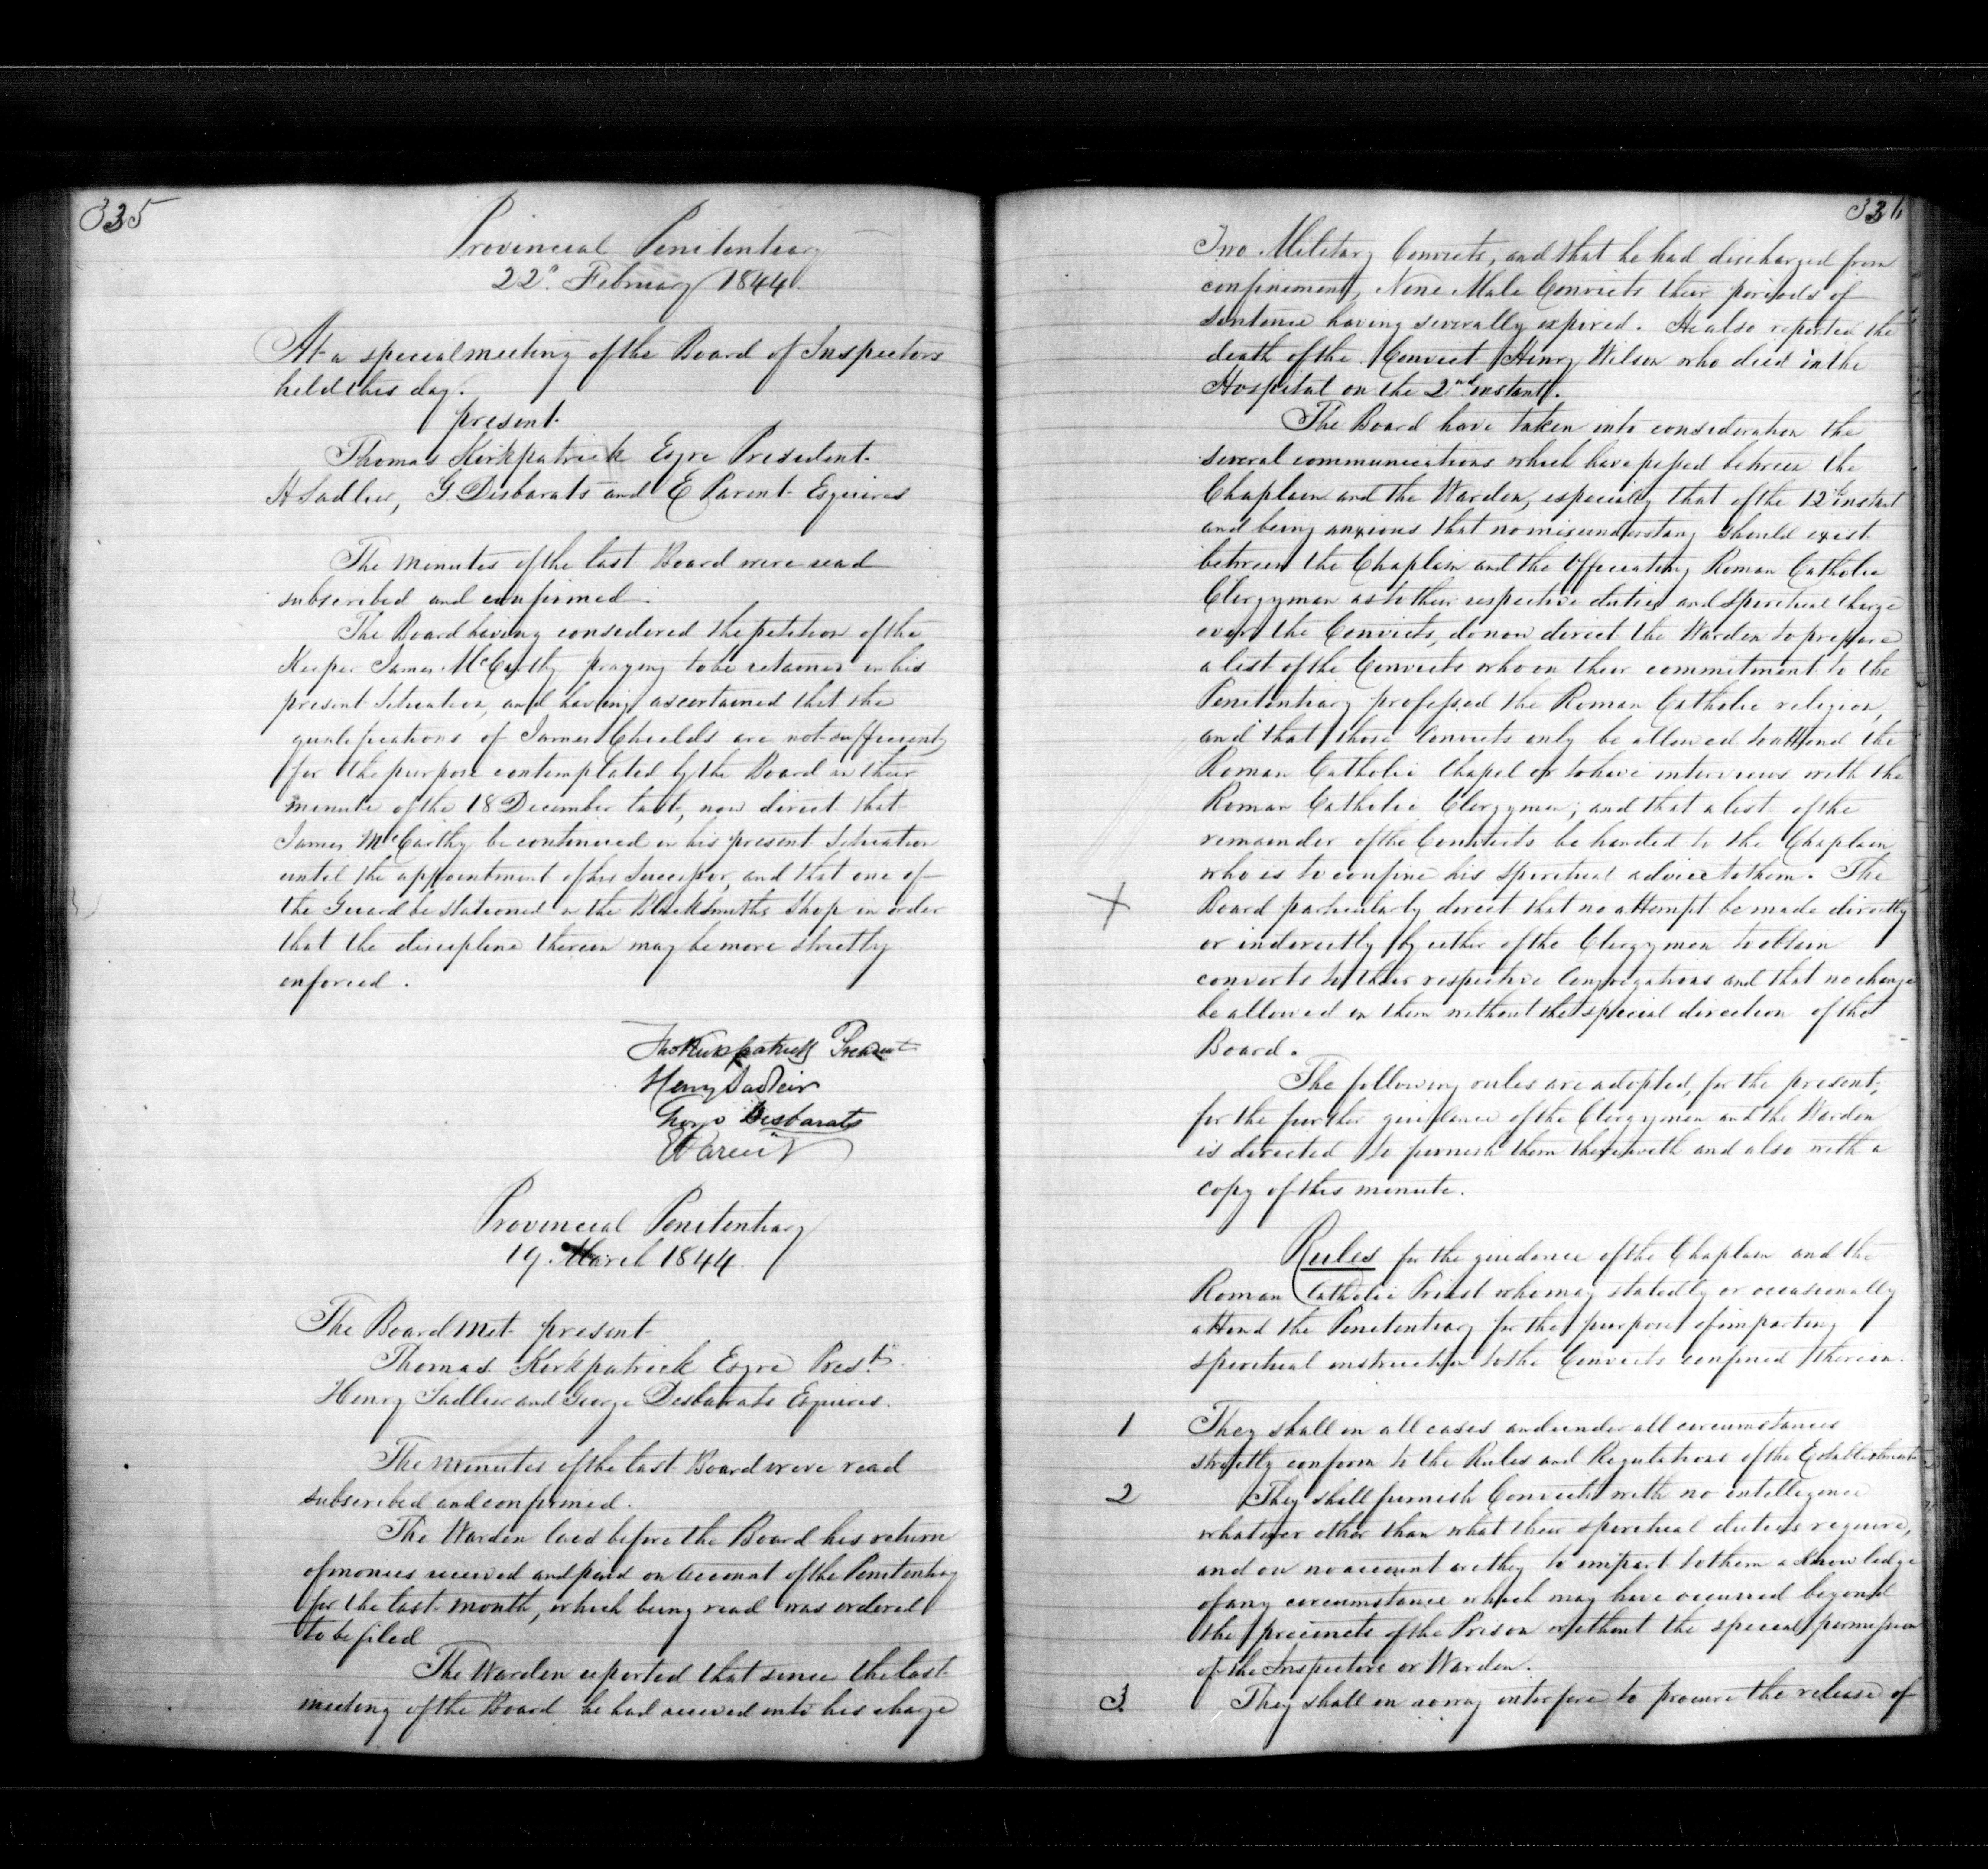 335
Provincial Penitentiary
22d. February 1844.
At a special meeting of the Board of Inspectors
held this day.
present
Thomas Kirkpatrick Esqre President
H Sadlier, G. Desbarats and E Parent Esquires
The minutes of the last Board were read
subscribed and confirmed.
The Board having considered the petition of the
Keeper James McCarthy praying to be retained in his
present Situation, and having ascertained that the
qualifications of James Chields are not sufficient
for the purpose contemplated by the Board in their
minute of the 18 December last, now direct that
James McCarthy be continued in his present Situation
until the appointment of his Successor, and that one of
the Guard be stationed in the Blacksmiths Shop in order
that the discipline therein may be more strictly
enforced.
Thos Kirkpatrick President
Henry Sadleir
George Desbarats
E Parent
Provincial Penitentiary
19 March 1844.
The Board met present
Thomas Kirkpatrick Esqre Prest.
Henry Sadlier and George Desbarats Esquires.
The Minutes of the last Board were read
subscribed and confirmed.
The Warden laid before the Board his return
of monies received and paid on account of the Penitentiary
for the last month, which being read was ordered
to be filed
The Warden reported that since the last
meeting of the Board he had received into his charge
336
Two Military Convicts, and that he had discharged from
confinement, Nine Male Convicts their periods of
Sentence having severally expired. He also reported the
death of the Convict Henry Wilson who died in the
Hospital on the 2nd instant.
The Board have taken into consideration the
several communications which have passed between the
Chaplain and the Warden, especially that of the 12th instant
and being anxious that no misunderstang should exist
between the Chaplain and the Officiating Roman Catholic
Clergyman as to their respective duties and Spiritual charge
over the Convicts, do now direct the Warden to prepare
a list of the Convicts who on their commitment to the
Penitentiary professed the Roman Catholic religion,
and that those Convicts only be allowed to attend the
Roman Catholic Chapel or to have interviews with the
Roman Catholic Clergyman; and that a list of the
remainder of the Convicts be handed to the Chaplain
who is to confine his Spiritual advice to them. The
X Board particularly direct that no attempt be made directly
or indirectly by either of the Clergymen to obtain
converts to their respective Congregations and that no change
be allowed in them without the special direction of the
Board.
The following rules are adopted, for the present,
for the further guidance of the Clergymen and the Warden
is directed to furnish them therewith and also with a
copy of this minute.
Rules for the guidance of the Chaplain and the
Roman Catholic Priest who may statedly or occasionally
attend the Penitentiary for the purpose of imparting
spiritual instruction to the Convicts confined therein.
1 They shall in all cases and under all circumstances
strictly conform to the Rules and Regulations of the Establishment
2 They shall furnish Convicts with no intelligence
whatever other than what their spiritual duties require,
and on no account are they to impart to them a knowledge
of any circumstance which may have occurred beyond
the precincts of the Prison without the special permission
of the Inspectors or Warden.
3 They shall in no way interfere to procure the release of